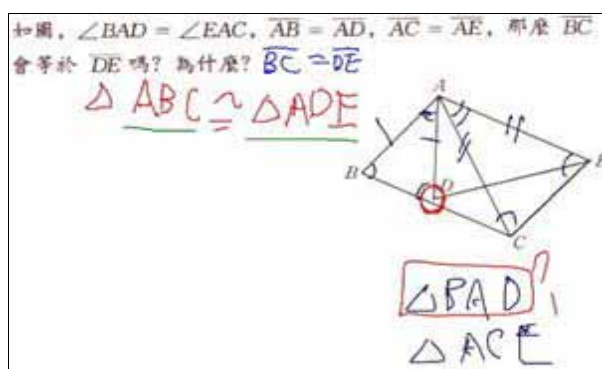 如圖，∠BAD = ∠EAC，AB = AD，AC = AE，那麼 BC
會等於 DE 嗎？為什麼？ BC = DE
△ ABC ≅ △ADE
A
B
D
E
C
△BAD ?
△ ACE